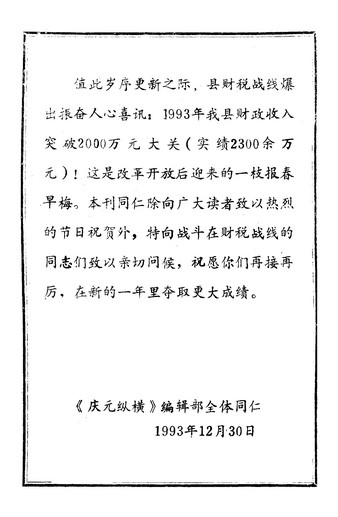 值此岁序更新之际，县财税战线爆
出振奋人心喜讯：1993年我县财政收入
突破2000万元大关（实绩2300余万
元）！这是改革开放后迎来的一枝报春
早梅。本刊同仁除向广大读者致以热烈
的节日祝贺外，特向战斗在财税战线的
同志们致以亲切问候，祝愿你们再接再
厉，在新的一年里夺取更大成绩。
《庆元纵横》编辑部全体同仁
1993年12月30日